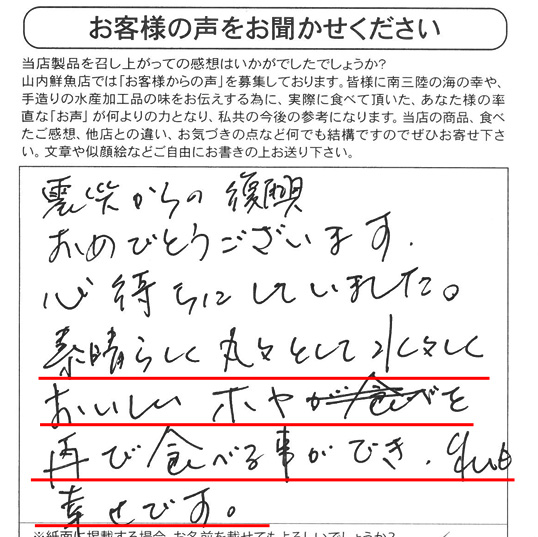 お客様の声をお聞かせください
当店製品を召し上がっての感想はいかがでしたでしょうか?
山内鮮魚店では「お客様からの声」を募集しております。皆様に南三陸の海の幸や、
手造りの水産加工品の味をお伝えする為に、実際に食べて頂いた、あなた様の率
直な「お声」が何よりの力となり、私共の今後の参考になります。当店の商品、食べ
たご感想、他店との違い、お気づきの点など何でも結構ですのでぜひお寄せ下さ
い。文章や似顔絵などご自由にお書きの上お送り下さい。
震災からの復興
おめでとうございます.
心待ちにしていました。
素晴らしく丸々として水々しく
おいしいホヤが食べを
再び食べる事ができ、
幸せです。
※紙面に掲載する場合、お名前を載せてもよろしいでしょうか?